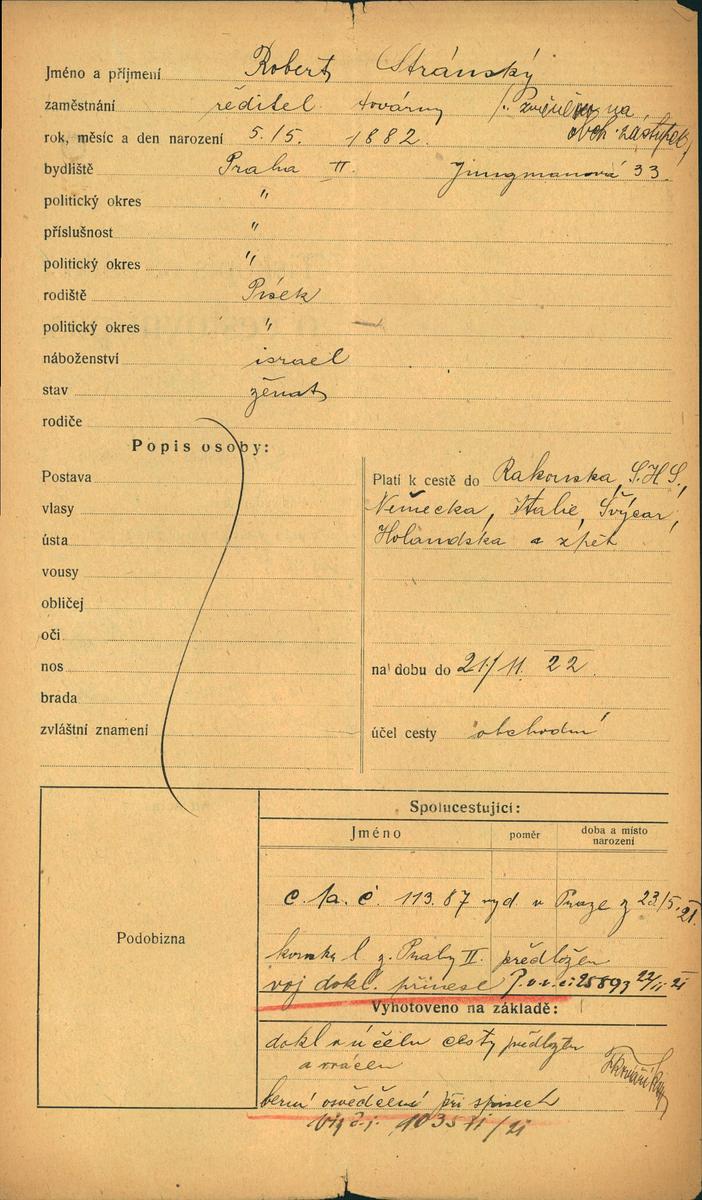 Jméno a příjmení Robert Stránský
zaměstnání ředitel továrny /: změněno na
obch. zástupce
rok, měsíc a den narození 5./5. 1882.
bydliště Praha II. Jungmanová 33.
politický okres "
příslušnost "
politický okres "
rodiště Písek
politický okres "
náboženství israel
stav ženat
rodiče
Popis osoby:
Postava
vlasy
ústa
vousy
obličej
oči
nos
brada
zvláštní znamení
Platí k cestě do Rakouska, S.H.S.,
Německa, Italie, Švýcar,
Holandska a zpět
na dobu do 21./11. 22.
účel cesty obchodní
Podobizna
Spolucestující:
Jméno poměr doba a místo narození
c. p. č. 113.87 vyd. v Praze z 23./5. 21.
z. Prahy II. předložen
voj dokl. přinese 25893 22/11 21
Vyhotoveno na základě:
dokl o účelu cesty předložen
a vrácen
berní osvědčení při spisech
1035 11/21